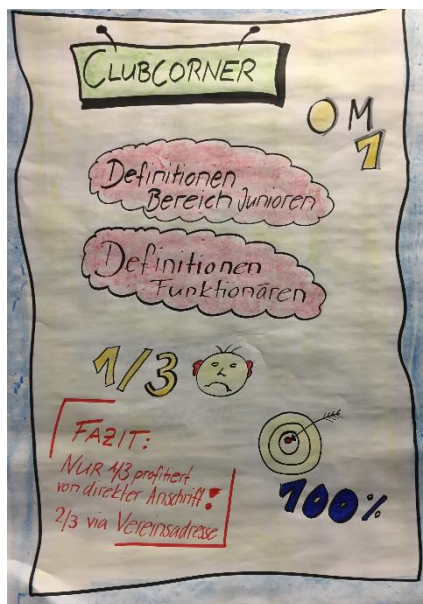 CLUBCORNER
O M
1
Definitionen
Bereich Junioren
Definitionen
Funktionären
1/3
FAZIT:
NUR 1/3 profitiert
von direkter Anschrift!
2/3 via Vereinsadresse
100%